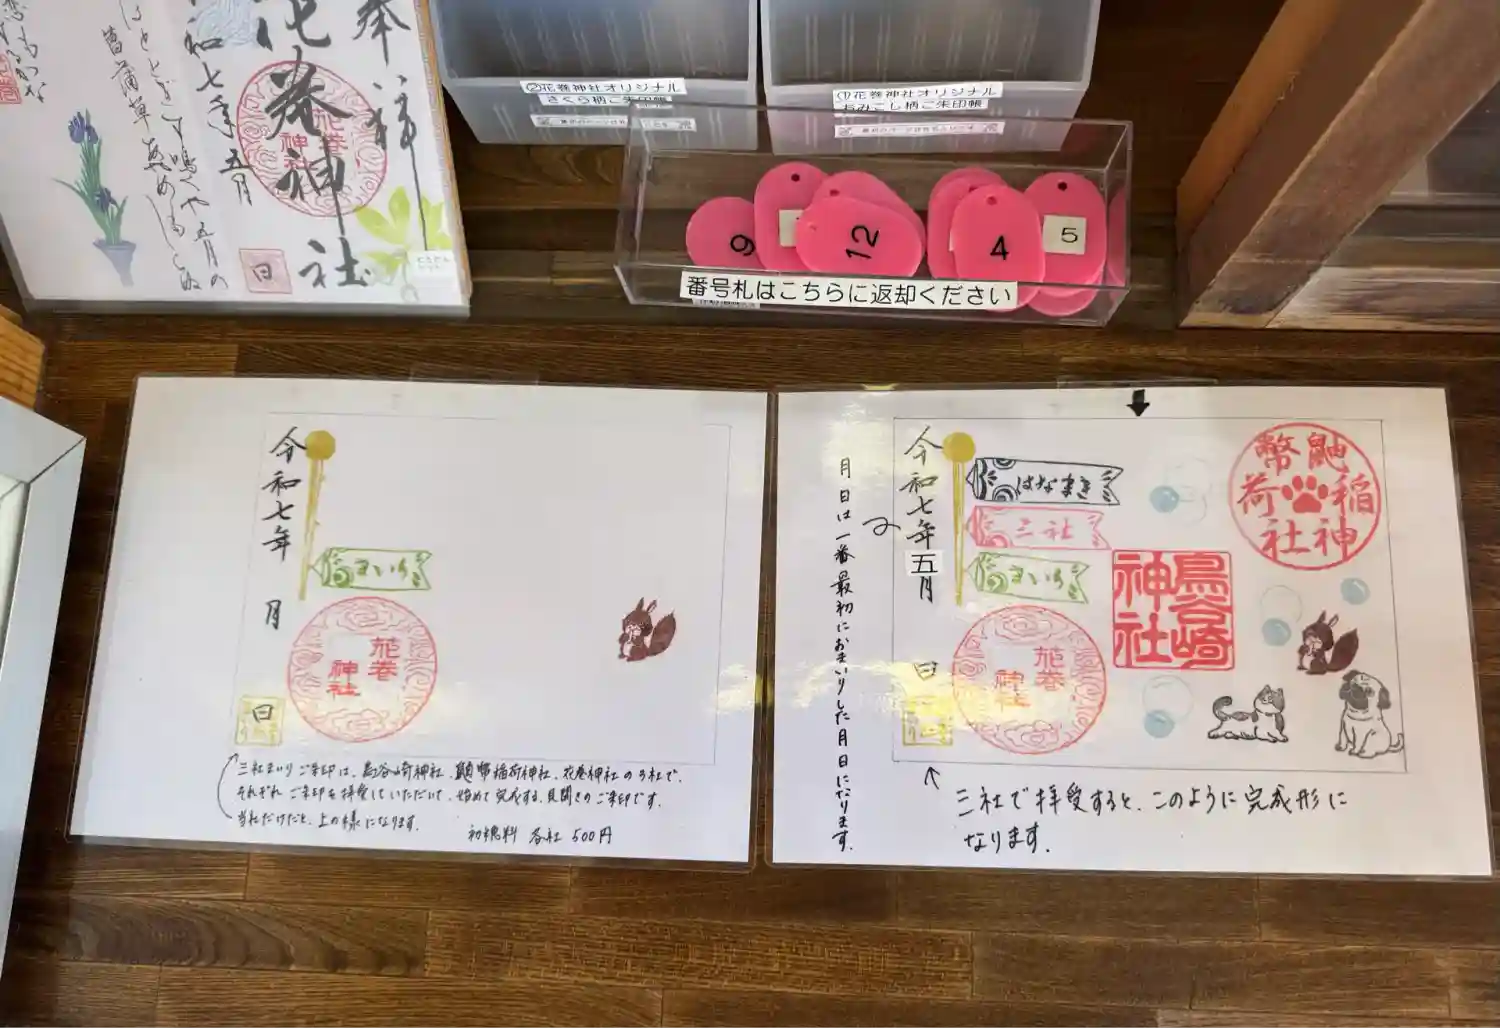 奉拝
花巻神社
令和七年五月
日
菖蒲草
②花巻神社オリジナル
さくら柄ご朱印帳
①花巻神社オリジナル
おみこし柄ご朱印帳
9
12
4
5
番号札はこちらに返却ください
令和七年 月
日
さいち
花巻
神社
三社まいりご朱印は、鳥谷崎神社、鼬幣稲荷神社、花巻神社の3社で、
それぞれご朱印を拝受していただいて、始めて完成する、見開きのご朱印です。
当社だけだと、上の様になります。
初穂料 各社 500円
月日は一番最初におまいりした月日になります。
令和七年五月
日
はなまき
三社
さいち
花巻
神社
鳥谷崎
神社
鼬幣
稲荷
神社
三社で拝受すると、このように完成形に
なります。